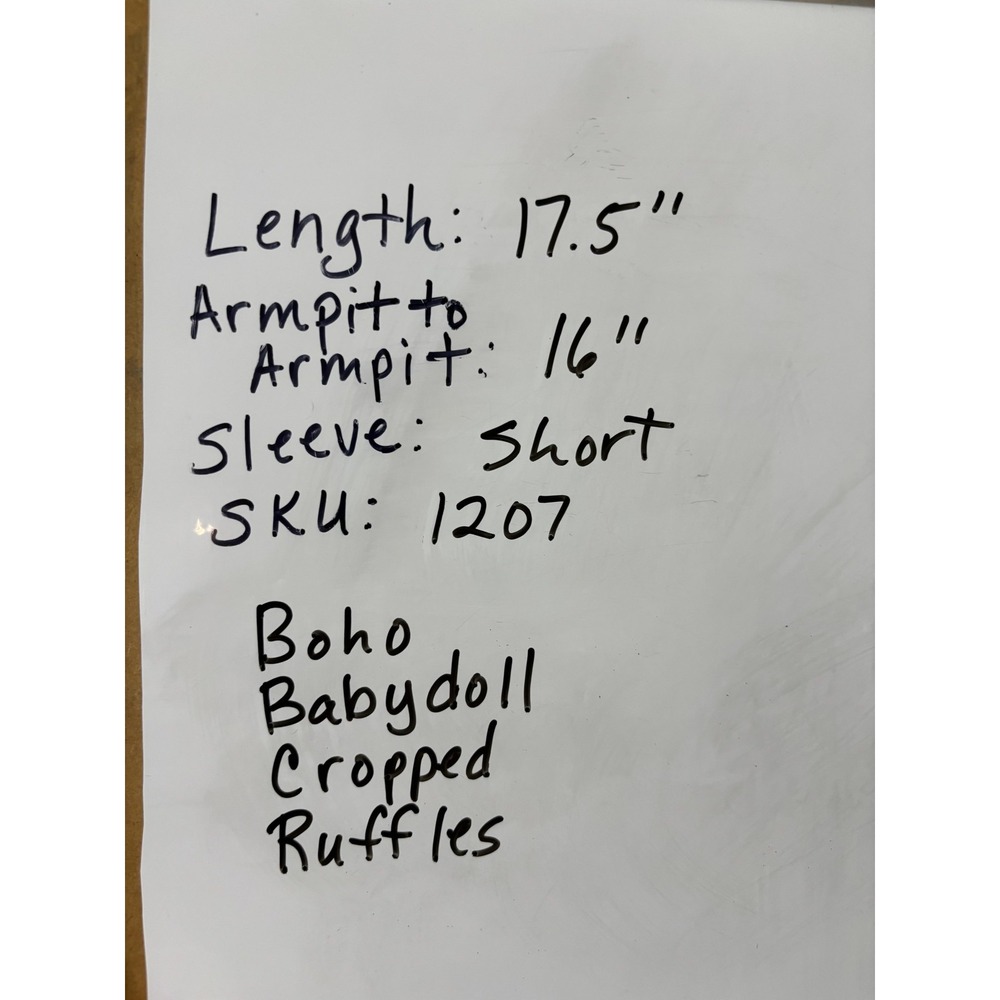 Length: 17.5"
Armpit to
Armpit: 16"
Sleeve: Short
SKU: 1207
Boho
Babydoll
Cropped
Ruffles